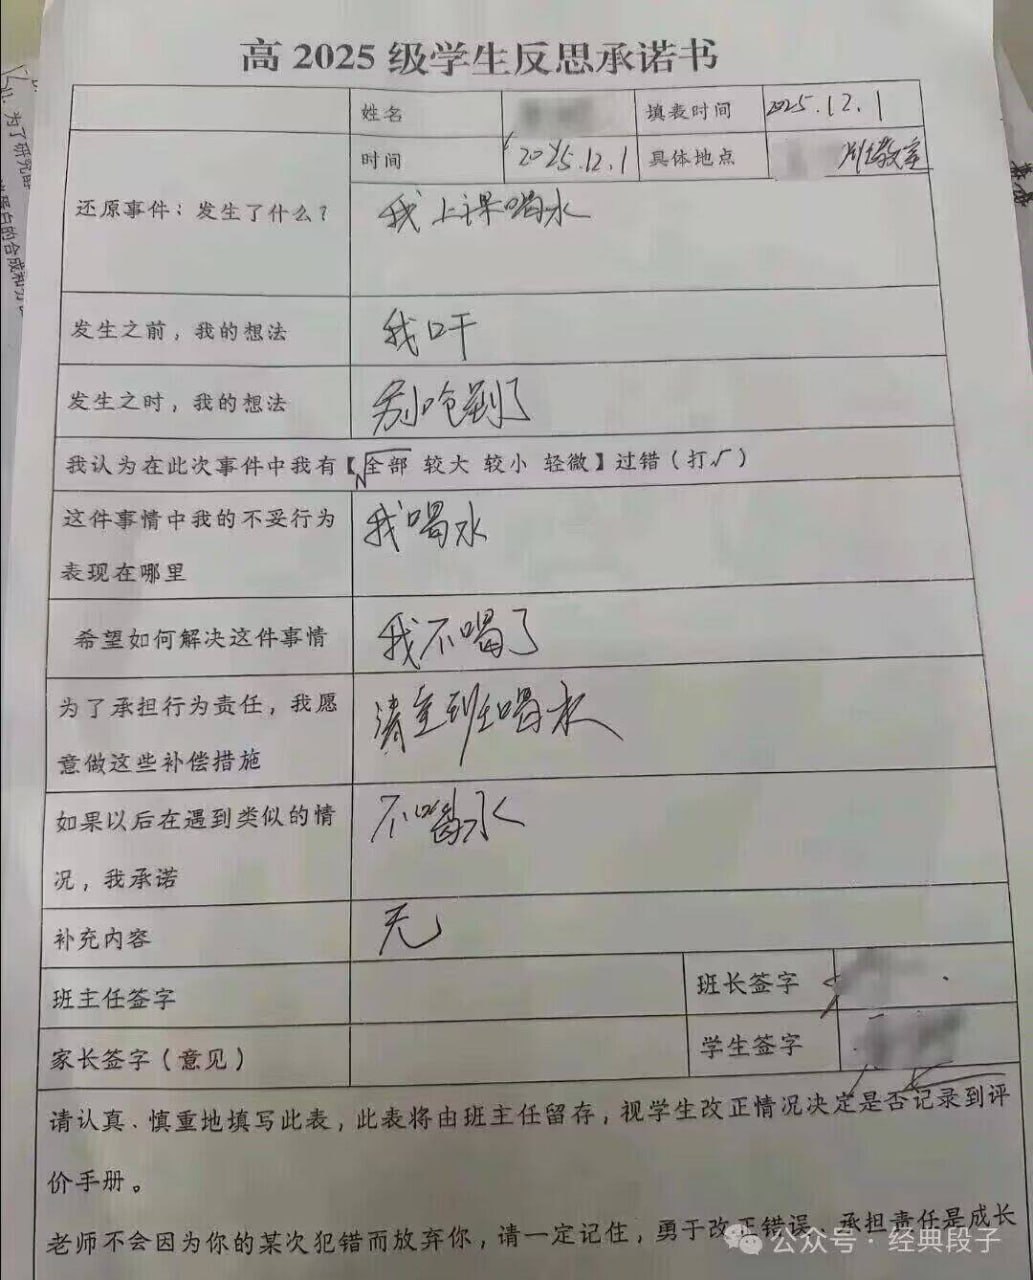 高 2025 级学生反思承诺书
姓名 填表时间 2025.12.1
时间 2025.12.1 具体地点 教室
还原事件：发生了什么？ 我上课喝水
发生之前，我的想法 我口干
发生之时，我的想法 别呛到了
我认为在此次事件中我有【全部 较大 较小 轻微】过错（打√）
这件事情中我的不妥行为
表现在哪里
我喝水
希望如何解决这件事情 我不喝了
为了承担行为责任，我愿
意做这些补偿措施
请全班喝水
如果以后在遇到类似的情
况，我承诺
不喝水
补充内容 无
班主任签字 班长签字
家长签字（意见） 学生签字
请认真、慎重地填写此表，此表将由班主任留存，视学生改正情况决定是否记录到评
价手册。
老师不会因为你的某次犯错而放弃你，请一定记住，勇于改正错误，承担责任是成长
公众号 · 经典段子